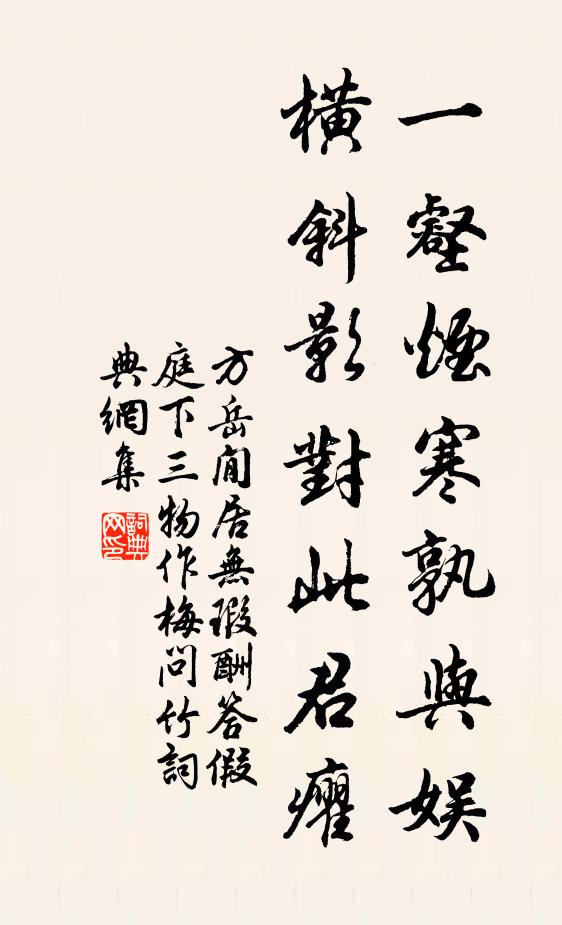 一壑煙寒孰與娛
橫斜影對此君癯
方岳閒居無瑕酬答假
庭下三物作梅問竹詞
典網集
詞典
网印